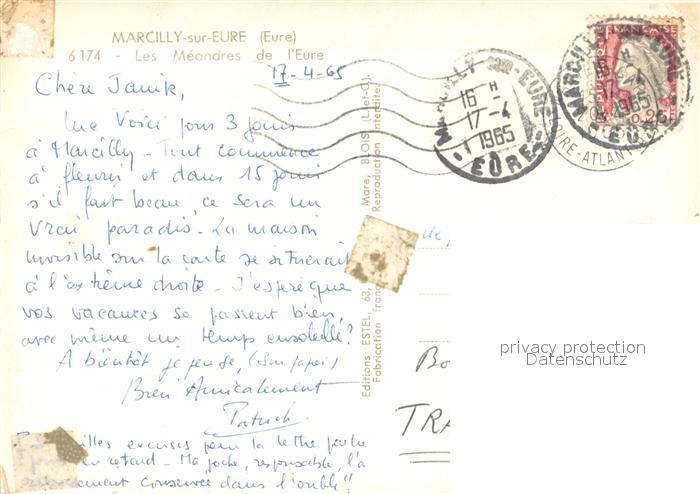 MARCILLY-sur-EURE (Eure)
6174 - Les Méandres de l'Eure
17-4-65
Chère Janik,
Me Voici pour 3 jours
à Marcilly - Tout commence
à fleurir et dans 15 jours
s'il fait beau, ce sera un
vrai paradis - La maison
invisible sur la carte se situerait
à l'extrême droite - J'espère que
vos vacances se passent bien,
avec même un temps ensoleillé?
A bientôt je pense, (Sur papier)
Bien Amicalement
Patrick.
excuses pour la lettre
en retard - Ma poche, responsable, l'a
conservée dans l'oubli"!
Editions ESTEL, 63, Mare, BLOIS (L.-et-C.).
Fabrication Reproduction interdite.
MARCILLY-SUR-EURE
16 H
17-4
1965
EURE
MARCILLY-EURE
16 H
17-4
1965
EURE
0,25
LOIRE-ATLANT
Bo
TRA
privacy protection
Datenschutz